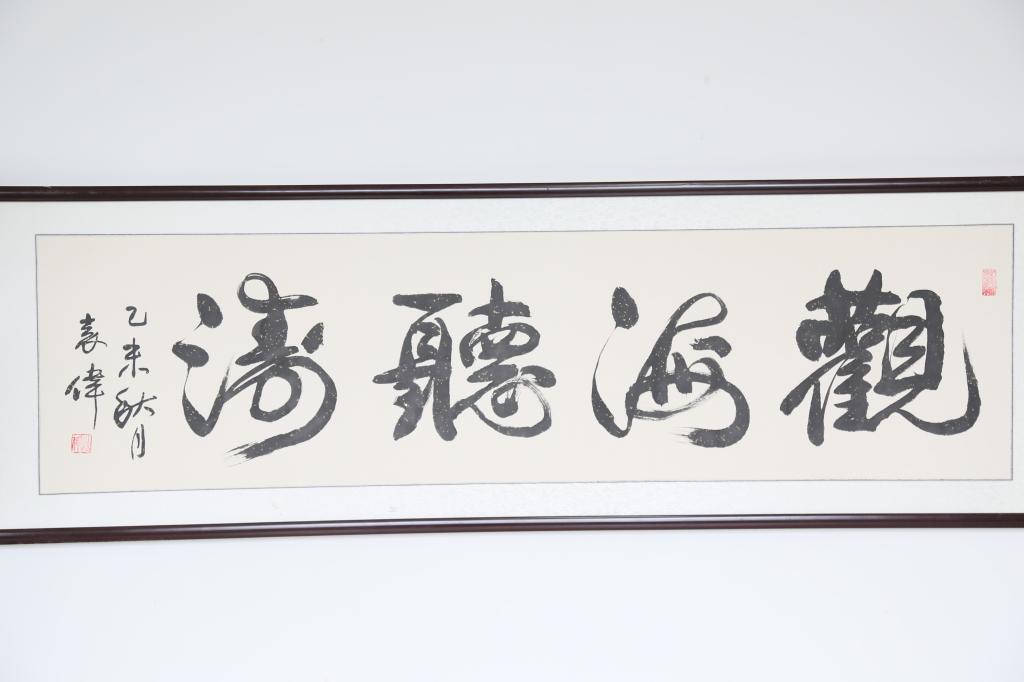 觀海聽濤
乙未秋月
袁偉